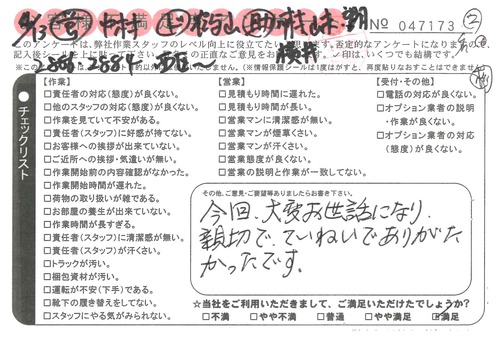 No 047173
このアンケートは、弊社作業スタッフのレベル向上に役立てたい
チェックリスト
【作業】
□責任者の対応(態度)が良くない。
□他のスタッフの対応(態度)が良くない。
□作業を見ていて不安がある。
□責任者(スタッフ)に好感が持てない。
□お客様への挨拶が出来ていない。
□ご近所への挨拶・気遣いが無い。
□作業開始前の内容確認がなかった。
□作業開始時間が遅れた。
□荷物の取り扱いが雑である。
□お部屋の養生が出来ていない。
□作業時間が長すぎる。
□責任者(スタッフ)に清潔感が無い。
□責任者(スタッフ)が汗くさい。
□トラックが汚い。
□梱包資材が汚い。
□運転が不安(下手)である。
□靴下の履き替えをしてない。
□スタッフにやる気がみられない。
【営業】
□見積もり時間に遅れた。
□見積もり時間が長い。
□営業マンに清潔感が無い。
□営業マンが煙草くさい。
□営業マンが汗くさい。
□営業態度が良くない。
□営業の説明と作業が一致してない。
【受付・その他】
□電話の対応が良くない。
□オプション業者の説明
・作業が良くない。
□オプション業者の対応
(態度)が良くない。
その他、ご意見・ご要望等ありましたらお書き下さい。
今回、大変お世話になり、
親切で、ていねいでありがた
かったです。
☆当社をご利用いただきまして、ご満足いただけでしょうか?
□不満 □やや不満 □普通 □やや満足 □満足